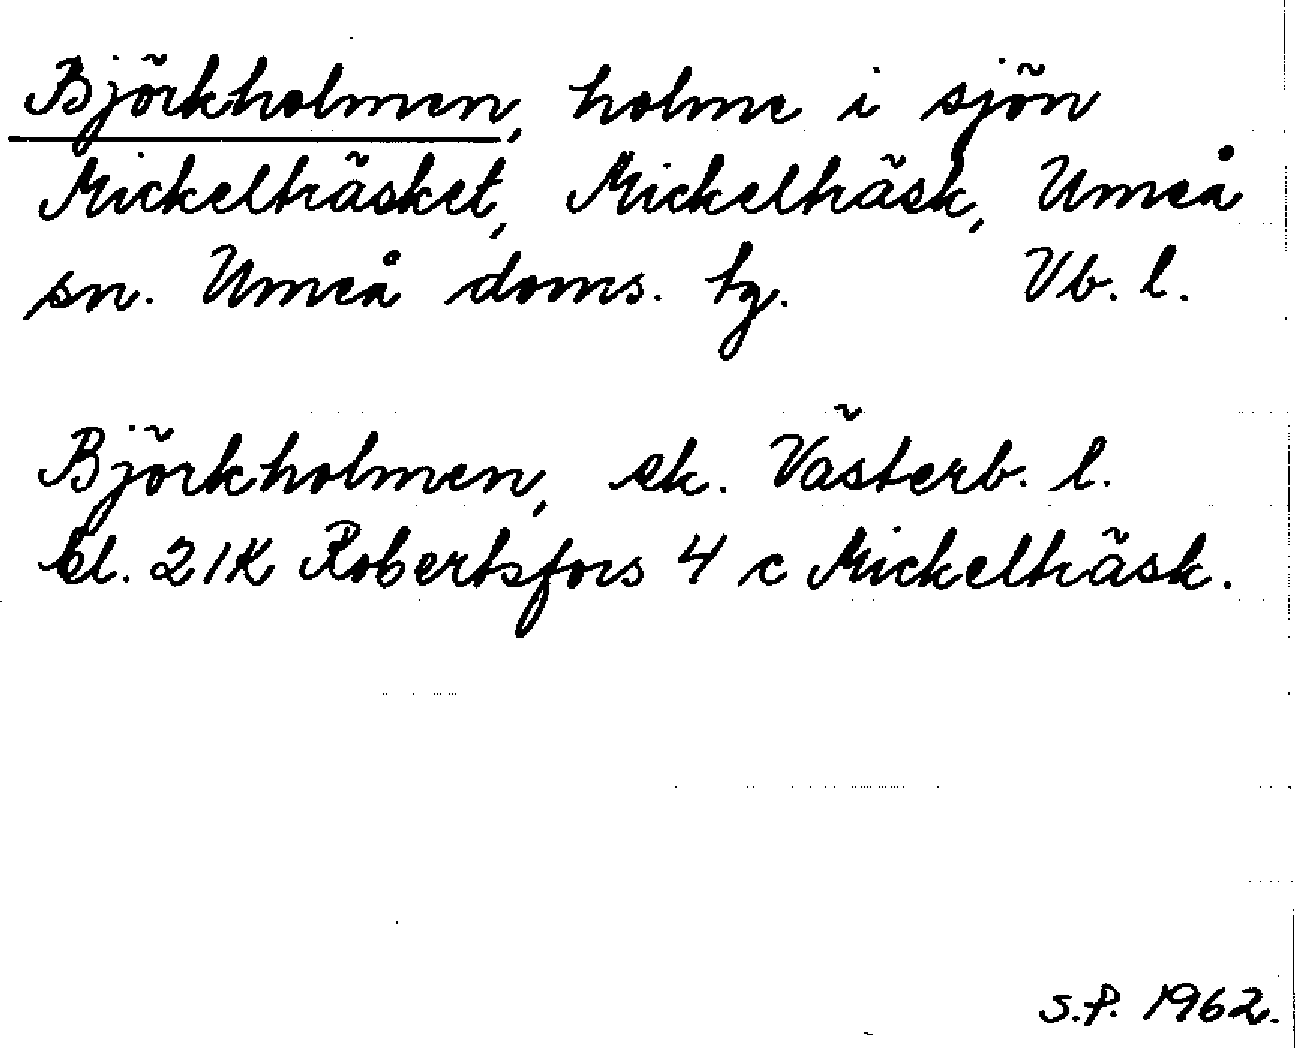 Björkholmen, holme i sjön
Mickelträsket, Mickelträsk, Umeå
sn. Umeå doms. tg. Vb. l.
Björkholmen, ek. Västerb. l.
bl. 21K Robertsfors 4 c Mickelträsk.
S.P. 1962.